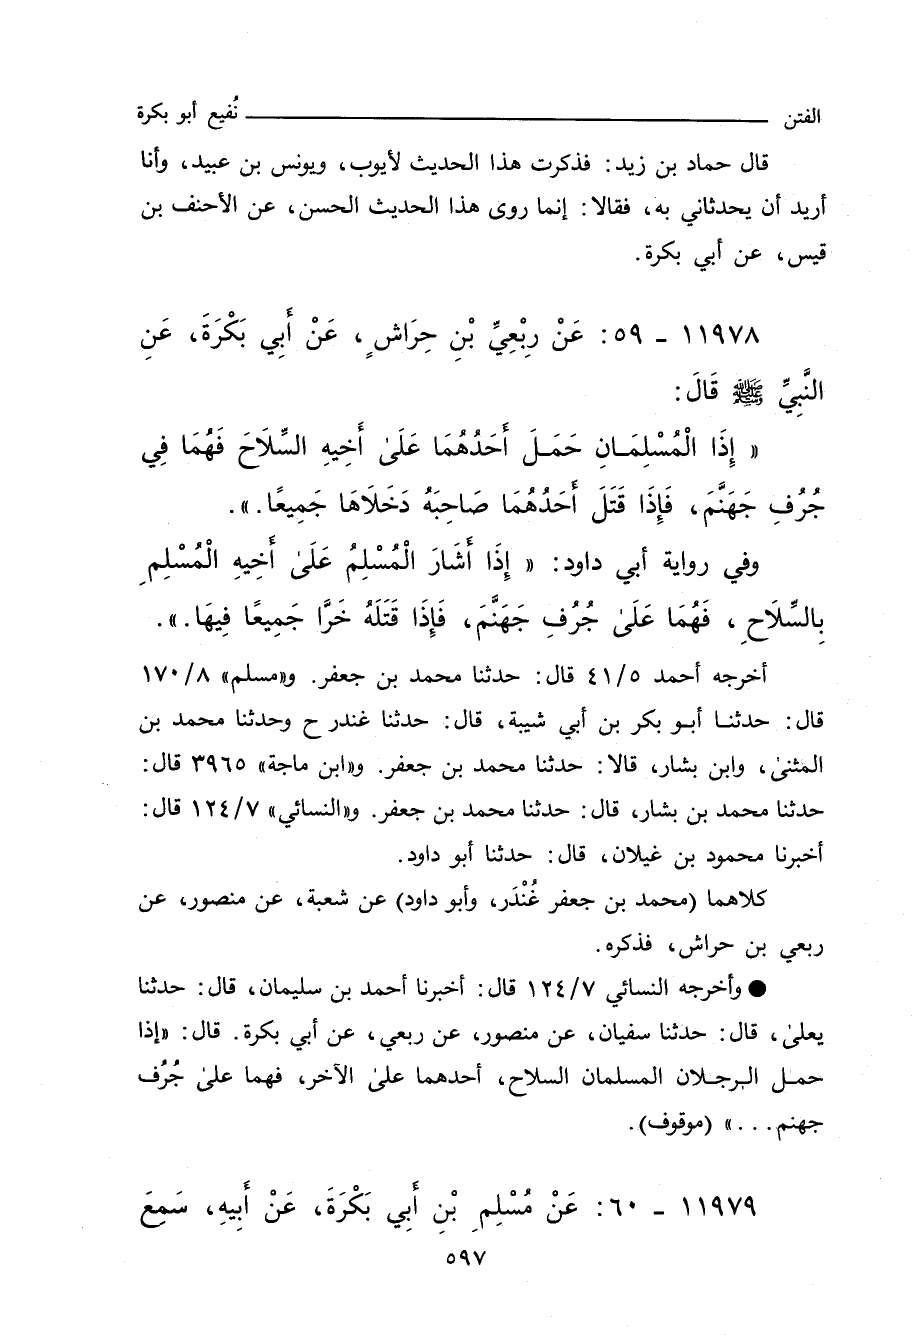 الفتن ــــــــــــــــ نُفيع أبو بكرة
قال حماد بن زيد: فذكرت هذا الحديث لأيوب، ويونس بن عبيد، وأنا
أريد أن يحدثاني به، فقالا: إنما روى هذا الحديث الحسن، عن الأحنف بن
قيس، عن أبي بكرة.
١١٩٧٨ ـ ٥٩: عَنْ رِبْعِيِّ بْنِ حِرَاشٍ، عَنْ أَبِي بَكْرَةَ، عَنِ
النَّبِيِّ ﷺ قَالَ:
« إِذَا الْمُسْلِمَـانِ حَمَـلَ أَحَدُهُمَا عَلَىٰ أَخِيهِ السِّلَاحَ فَهُمَا فِي
جُرُفِ جَهَنَّمَ، فَإِذَا قَتَلَ أَحَدُهُمَا صَاحِبَهُ دَخَلَاهَا جَمِيعًا.».
وفي رواية أبي داود: « إِذَا أَشَارَ الْمُسْلِمُ عَلَىٰ أَخِيهِ الْمُسْلِمِ
بِالسِّلَاحِ، فَهُمَا عَلَىٰ جُرُفِ جَهَنَّمَ، فَإِذَا قَتَلَهُ خَرَّا جَمِيعًا فِيهَا.».
أخرجه أحمد ٤١/٥ قال: حدثنا محمد بن جعفر. و«مسلم» ١٧٠/٨
قال: حدثنـا أبـو بكر بن أبي شيبة، قال: حدثنا غندر ح وحدثنا محمد بن
المثنىٰ، وابن بشار، قالا: حدثنا محمد بن جعفر. و«ابن ماجة» ٣٩٦٥ قال:
حدثنا محمد بن بشار، قال: حدثنا محمد بن جعفر. و«النسائي» ١٢٤/٧ قال:
أخبرنا محمود بن غيلان، قال: حدثنا أبو داود.
كلاهما (محمد بن جعفر غُنْدَر، وأبو داود) عن شعبة، عن منصور، عن
ربعي بن حراش، فذكره.
● وأخرجه النسائي ١٢٤/٧ قال: أخبرنا أحمد بن سليمان، قال: حدثنا
يعلىٰ، قال: حدثنا سفيان، عن منصور، عن ربعي، عن أبي بكرة. قال: «إذا
حمـل الـرجـلان المسلمان السلاح، أحدهما علىٰ الآخر، فهما علىٰ جُرُف
جهنم...» (موقوف).
١١٩٧٩ ـ ٦٠: عَنْ مُسْلِمِ بْنِ أَبِي بَكْرَةَ، عَنْ أَبِيهِ، سَمِعَ
٥٩٧